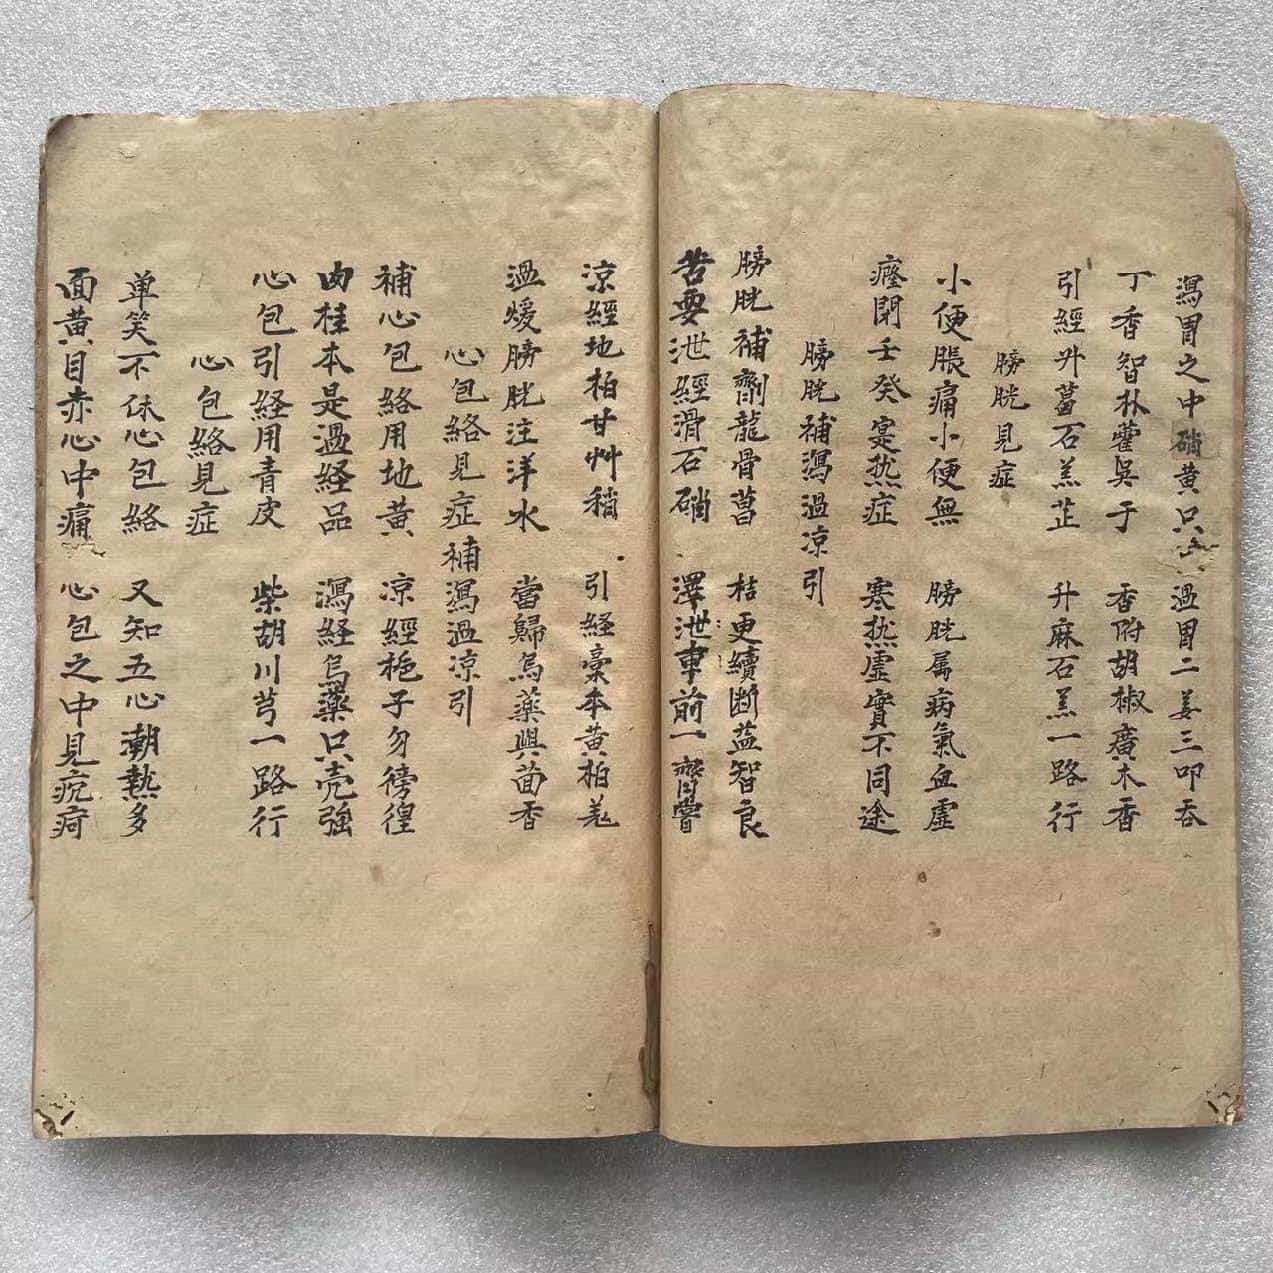 瀉胃之中硝黄只 温胃二姜三叩吞
丁香智朴藿吳于 香附胡椒廣木香
引經升葛石羔芷 升麻石羔一路行
膀胱見症
小便脹痛小便無 膀胱屬病氣血虛
癃閉壬癸寔热症 寒热虛實不同途
膀胱補瀉温凉引
膀胱補劑龍骨菖 桔更續断益智良
苦要泄經滑石硝 澤泄車前一齊嘗
凉經地柏甘艸稍 引経藁本黄柏羌
温煖膀胱注洋水 當歸烏薬與茴香
心包絡見症補瀉温凉引
補心包絡用地黄 凉經梔子勿徬徨
肉桂本是温経品 瀉経烏薬只壳強
心包引経用青皮 柴胡川芎一路行
心包絡見症
单笑不休心包絡 又知五心潮熱多
面黄目赤心中痛 心包之中見疣疴